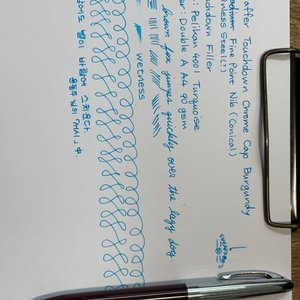 affer Touchdown Chrome Cap Burgundy
Fine Point Nib (Conical)
inless Steel(?)
chdown Filler
: Pelikan 4001 Turquoise
er: Double A A4 90gsm
brown fox jumps quickly over the lazy dog
wetness
별이 바람에 스치운다
윤동주 님의 「서시」 中